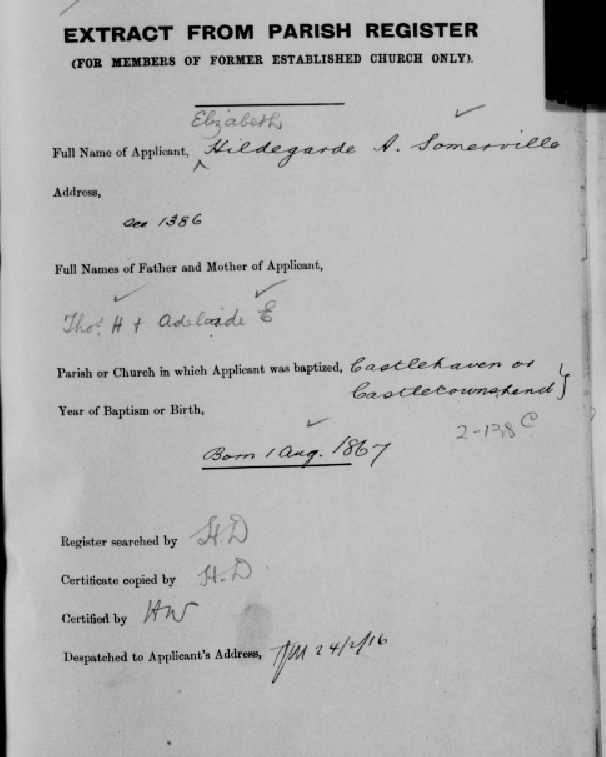 EXTRACT FROM PARISH REGISTER
(FOR MEMBERS OF FORMER ESTABLISHED CHURCH ONLY).
Elizabeth
Full Name of Applicant, ^ Hildegarde A. Somerville
Address,
See 1386
Full Names of Father and Mother of Applicant,
Thos. H + Adelaide E
Parish or Church in which Applicant was baptized, Castlehaven or
Castletownshend }
Year of Baptism or Birth,
2-138 C
Born 1 Aug. 1867
Register searched by H.D
Certificate copied by H.D
Certified by HW
Despatched to Applicant's Address, 24/2/16